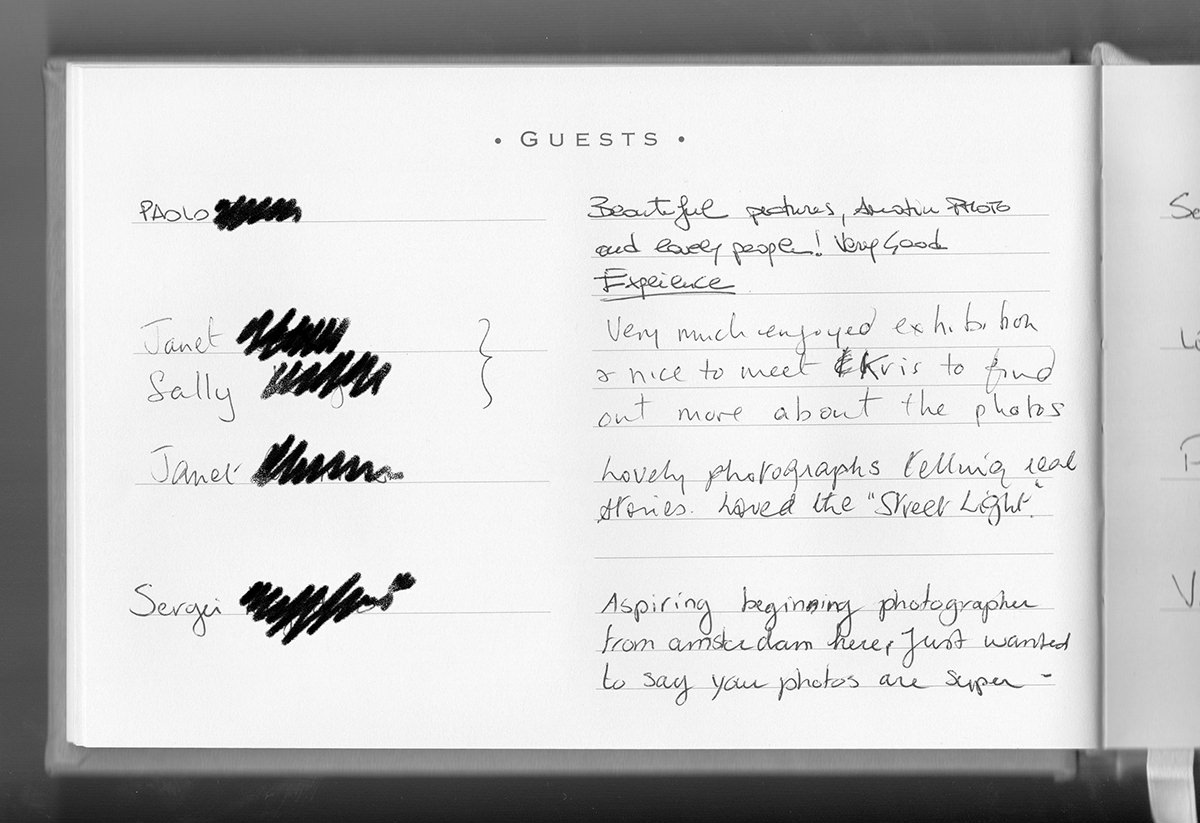 • GUESTS •
PAOLO
Beautiful pictures, PHOTO
and lovely people! Very Good
Expeience
Janet
Very much enjoyed exhibition
Sally
& nice to meet Kris to find
out more about the photos
Janet
Lovely photographs telling real
stories. Loved the "Street Light".
Sergei
Aspiring beginning photographer
from amsterdam here, Just wanted
to say your photos are super -
Se
V